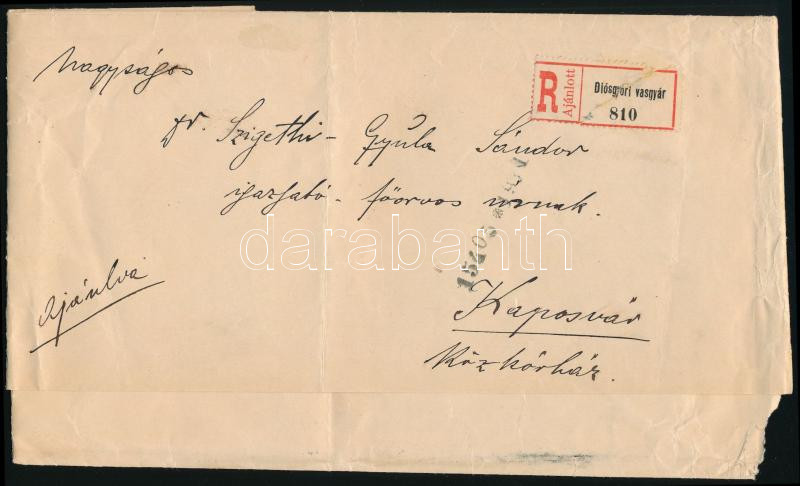 Nagyságos
R Ajánlott
Diósgyőri vasgyár
810
dr. Szigethi-Gyula Sándor
igazgató-főorvos urnak.
Ajánlva
Kaposvár
Közkórház.
darabanth